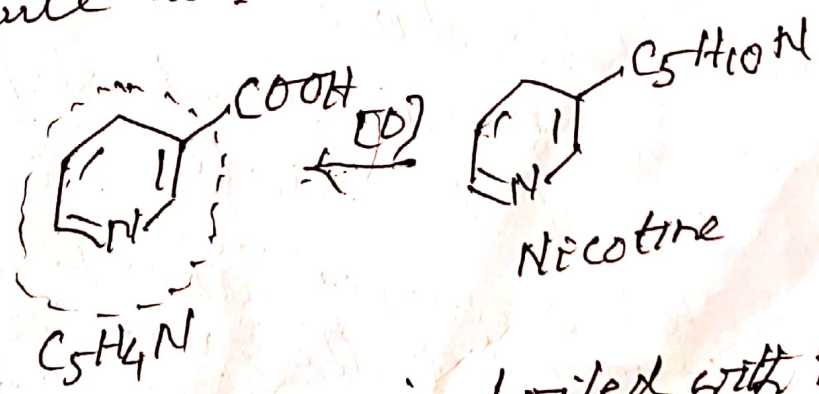 COOH
[O]
C5H10N
N
N
Nicotine
C5H4N
with